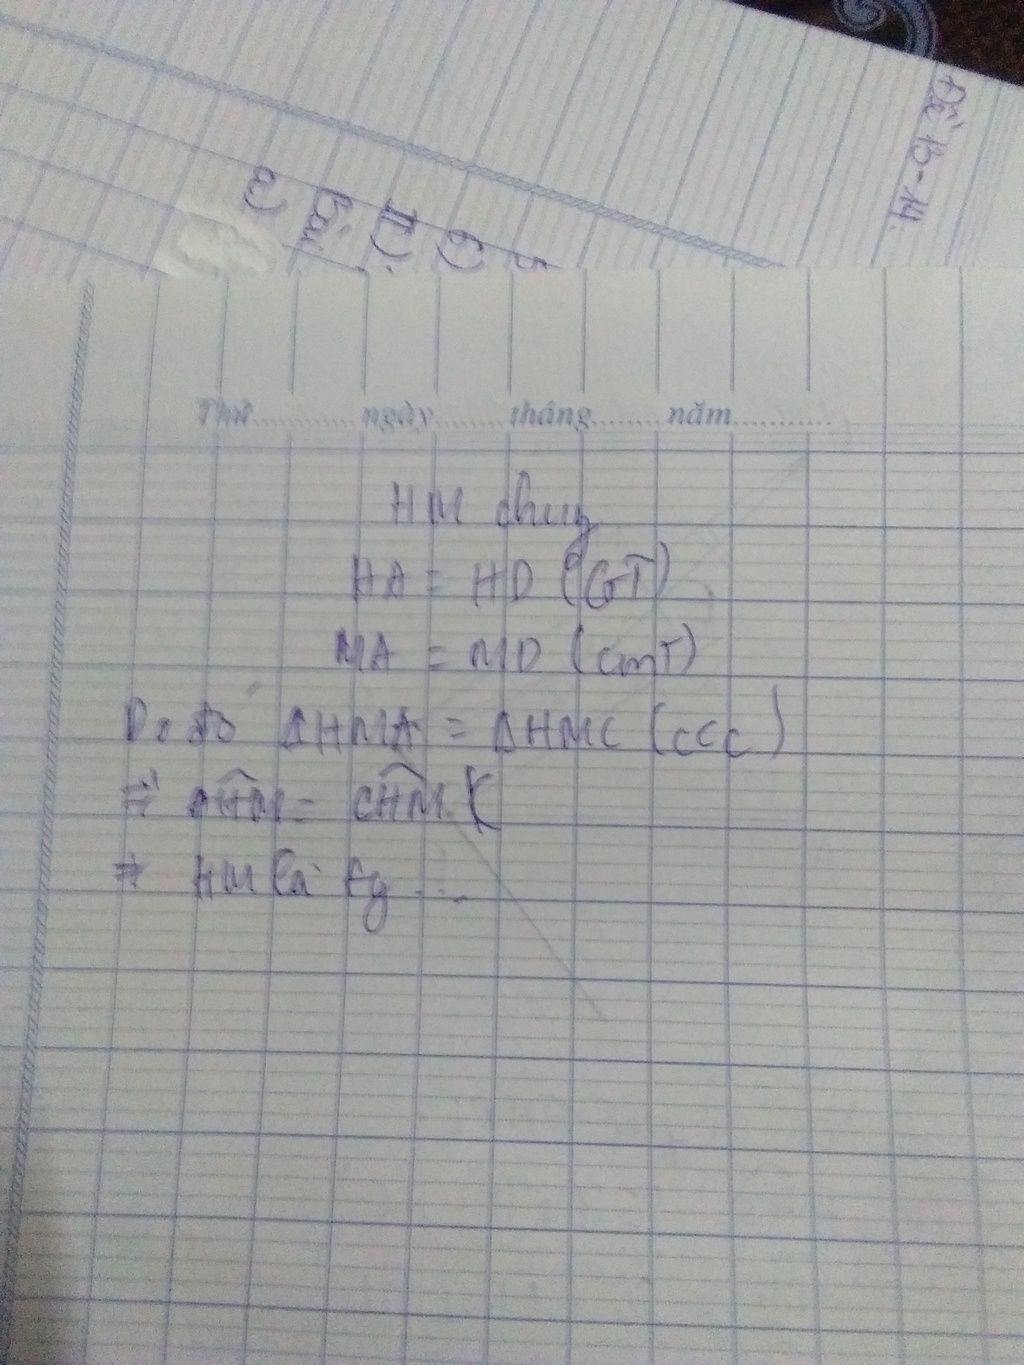 Đề 13-14.
5
6)
II).
Bài 1
a)
Thứ............ngày.........tháng........năm............
HM chung
HA = HD (GT)
MA = MD (cmT)
Do đó ΔHMA = ΔHMC (ccc)
=> AHM = CHM (
=> HM là fg ...